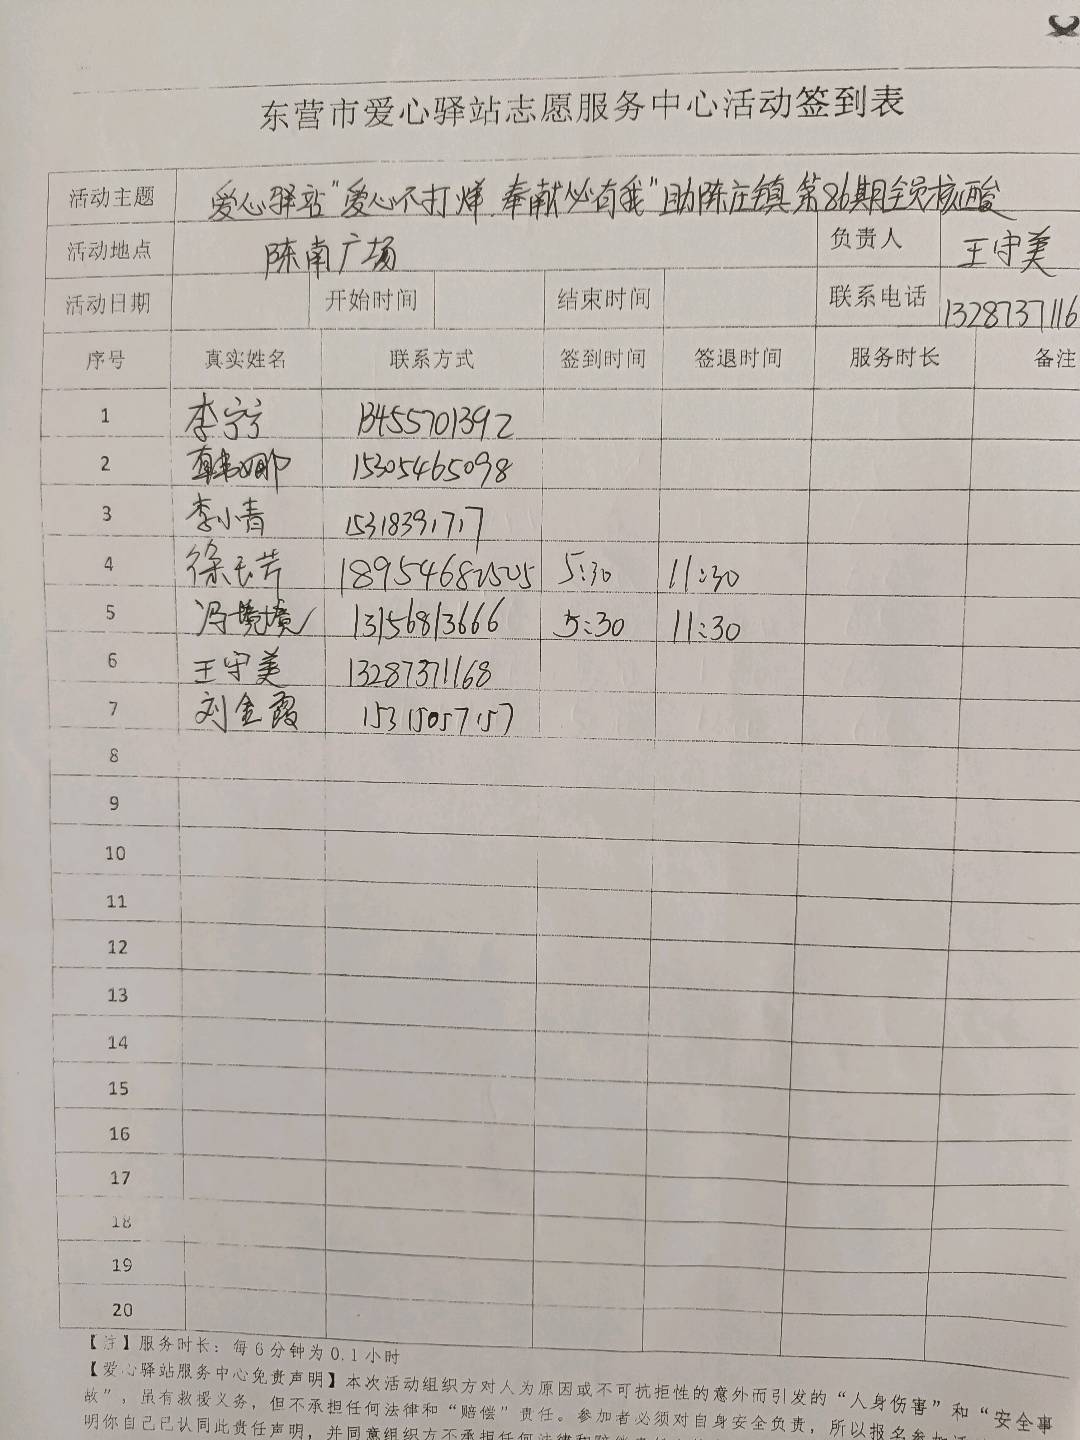 东营市爱心驿站志愿服务中心活动签到表
活动主题 爱心驿站“爱心不打烊.奉献必有我”助陈庄镇第86期全员核酸
活动地点 陈南广场 负责人 王守美
活动日期 开始时间 结束时间 联系电话 1328737116
序号 真实姓名 联系方式 签到时间 签退时间 服务时长 备注
1 李宁宁 13455701392
2 韩娜 15305465098
3 李小青 15318391717
4 徐玉芳 18954682505 5:30 11:30
5 冯境境 13156813666 5:30 11:30
6 王守美 13287371168
7 刘金霞 15315057157
8
9
10
11
12
13
14
15
16
17
18
19
20
【注】服务时长：每6分钟为0.1小时
【爱心驿站服务中心免责声明】本次活动组织方对人为原因或不可抗拒性的意外而引发的“人身伤害”和“安全事
故”，虽有救援义务，但不承担任何法律和“赔偿”责任。参加者必须对自身安全负责，所以报名参加
明你自己已认同此责任声明，并同意组织方不承担任何法律和赔偿